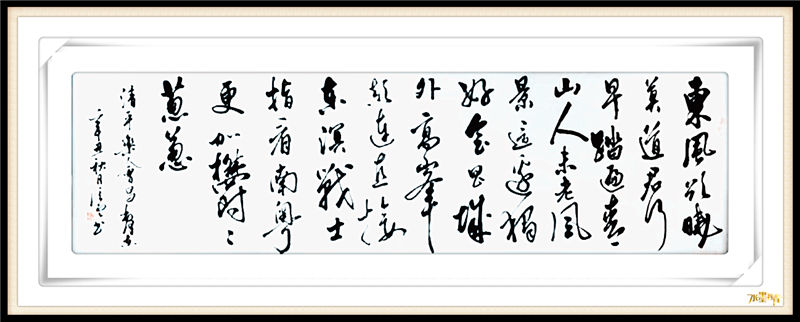 東風欲曉
莫道君行
早踏遍青
山人未老風
景這邊獨
好會昌城
外高峯
顛連直接
東溟戰士
指看南粵
更加
蔥蔥
清平樂會昌
辛丑秋月 書